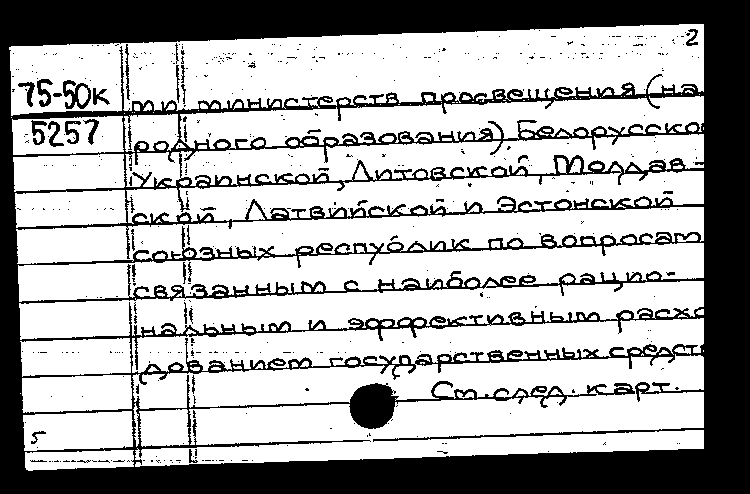 2
75-50к
5257
ти министерств просвещения (на
родного образования) Белорусско
Украинской, Литовской, Молдав-
ской, Латвийской и Эстонской
союзных республик по вопросам
связанным с наиболее рацио-
нальным и эффективным расхо
дованием государственных средств
См. след. карт.
5